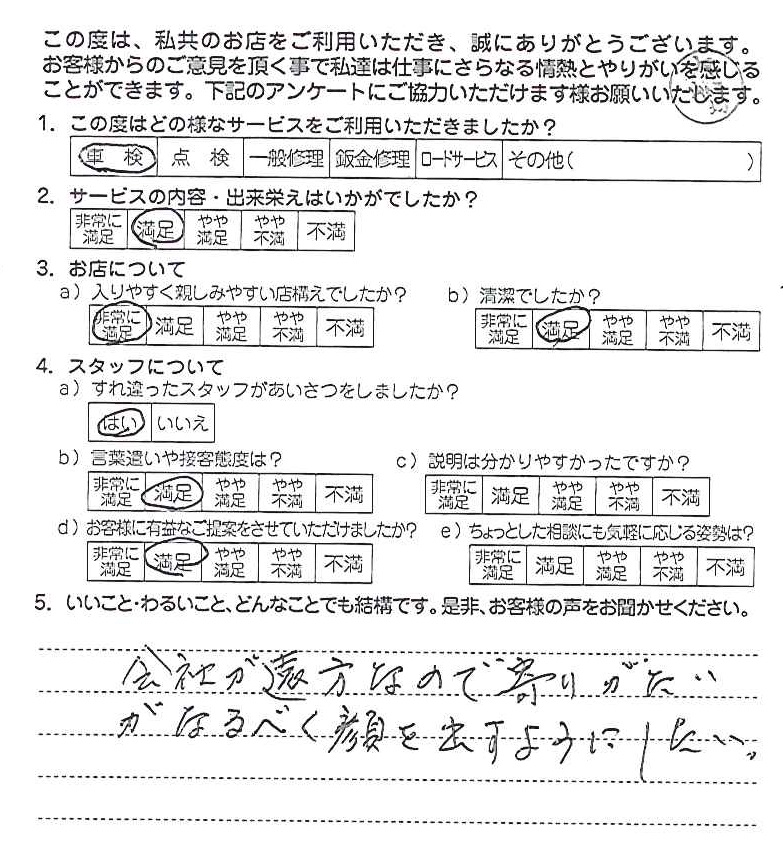 この度は、私共のお店をご利用いただき、誠にありがとうございます。
お客様からのご意見を頂く事で私達は仕事にさらなる情熱とやりがいを感じる
ことができます。下記のアンケートにご協力いただけます様お願いいたします。
1. この度はどの様なサービスをご利用いただきましたか?
車検 点検 一般修理 鈑金修理 ロードサービス その他( )
2. サービスの内容・出来栄えはいかがでしたか?
非常に満足 満足 やや満足 やや不満 不満
3. お店について
a) 入りやすく親しみやすい店構えでしたか? b) 清潔でしたか?
非常に満足 満足 やや満足 やや不満 不満 非常に満足 満足 やや満足 やや不満 不満
4. スタッフについて
a) すれ違ったスタッフがあいさつをしましたか?
はい いいえ
b) 言葉遣いや接客態度は? c) 説明は分かりやすかったですか?
非常に満足 満足 やや満足 やや不満 不満 非常に満足 満足 やや満足 やや不満 不満
d) お客様に有益なご提案をさせていただけましたか? e) ちょっとした相談にも気軽に応じる姿勢は?
非常に満足 満足 やや満足 やや不満 不満 非常に満足 満足 やや満足 やや不満 不満
5. いいこと・わるいこと、どんなことでも結構です。是非、お客様の声をお聞かせください。
会社が遠方なので寄りがたい
がなるべく顔を出すようにしたい。